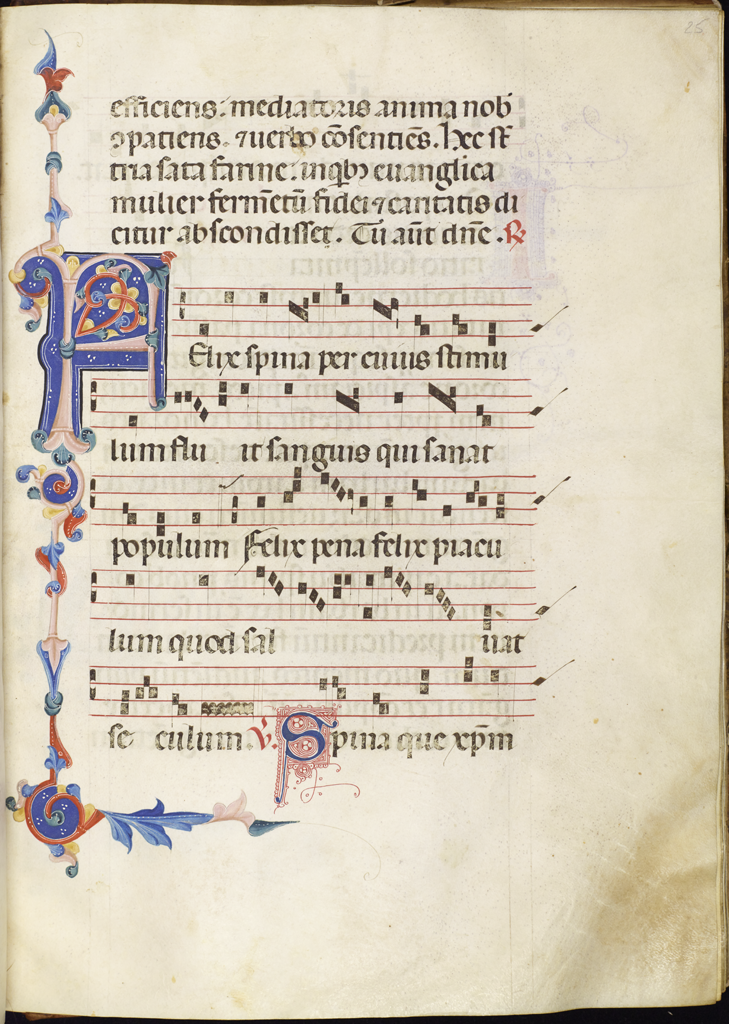 25
efficiens. mediatoris anima nob̄
ꝯpatiens. ⁊ uerbo cōsentiēs. Hec st̄
tria sata farine. in qͥbꝫ euanglica
mulier fermētū fidei ⁊ caritatis di
citur abscondisset. Tu aūt dn̄e. ℟
Felix spina per cuius stimu
lum flu it sanguis qui sanat
populum Felix pena felix piacu
lum quod sal uat
se culum. ℣. Spina que xp̄m